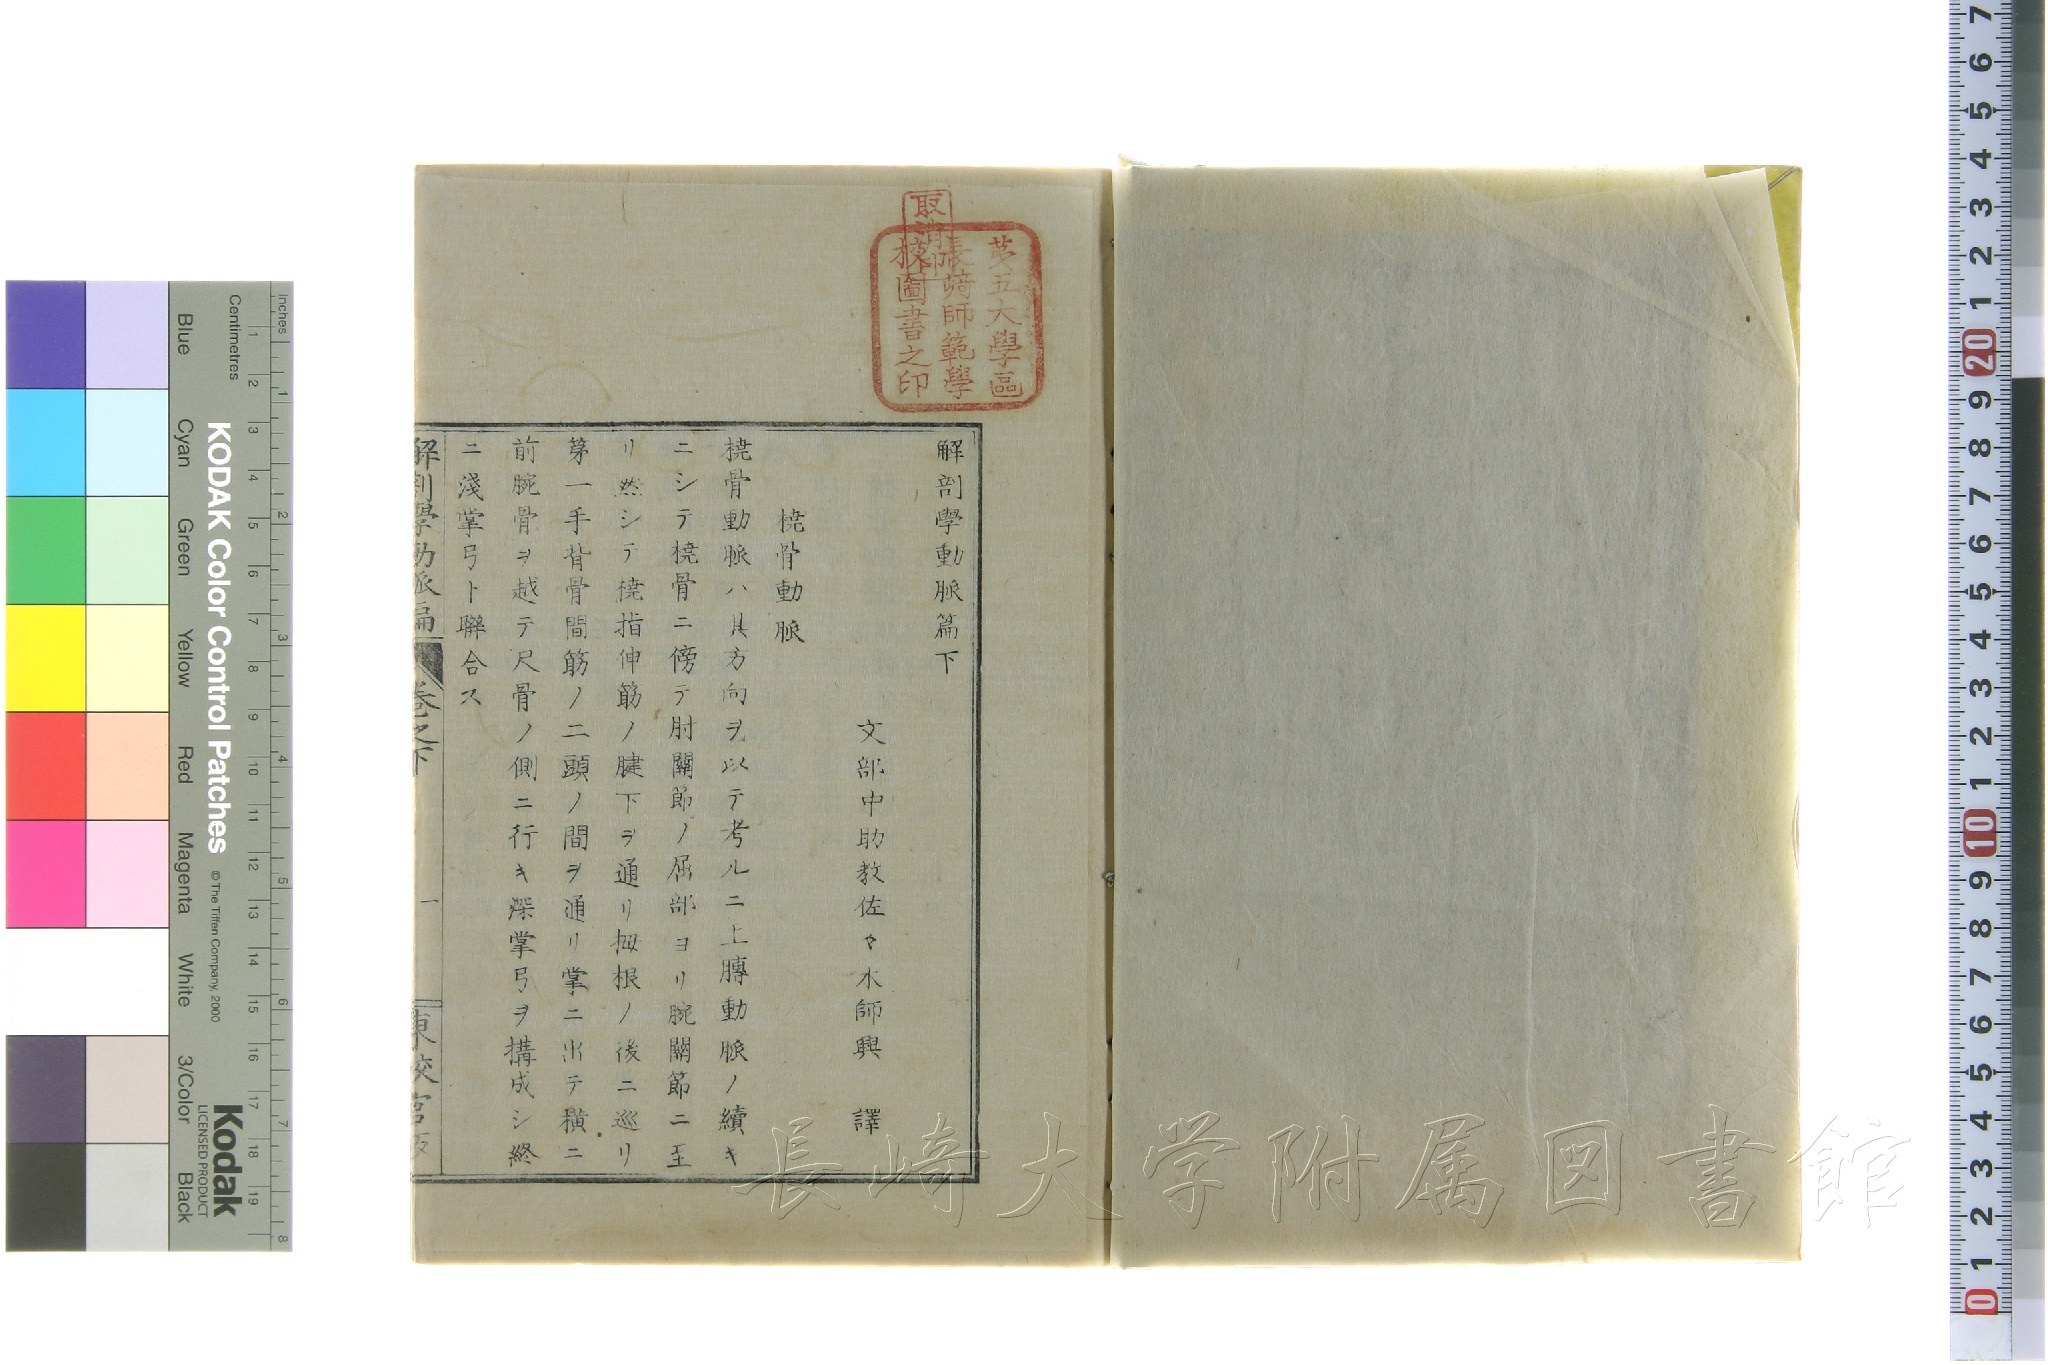 取消印
第五大學區
長﨑師範學
校圖書之印
解剖學動脈篇下
文部中助教佐々木師興 譯
橈骨動脈
橈骨動脈ハ其方向ヲ以テ考ルニ上膊動脈ノ續キ
ニシテ橈骨ニ傍テ肘關節ノ屈部ヨリ腕關節ニ至
リ然シテ橈指伸筋ノ腱下ヲ通リ拇根ノ後ニ巡リ
第一手背骨間筋ノ二頭ノ間ヲ通リ掌ニ出テ橫ニ
前腕骨ヲ越テ尺骨ノ側ニ行キ深掌弓ヲ搆成シ終
ニ淺掌弓ト聯合ス
解剖學動脈篇 卷之下 一 東校官版
長崎大学附属図書館
Inches
Centimetres
1 2 3 4 5 6 7 8
1 2 3 4 5 6 7 8 9 10 11 12 13 14 15 16 17 18 19
KODAK Color Control Patches © The Tiffen Company, 2000
Kodak
LICENSED PRODUCT
Blue Cyan Green Yellow Red Magenta White 3/Color Black
0 1 2 3 4 5 6 7 8 9 10 1 2 3 4 5 6 7 8 9 20 1 2 3 4 5 6 7